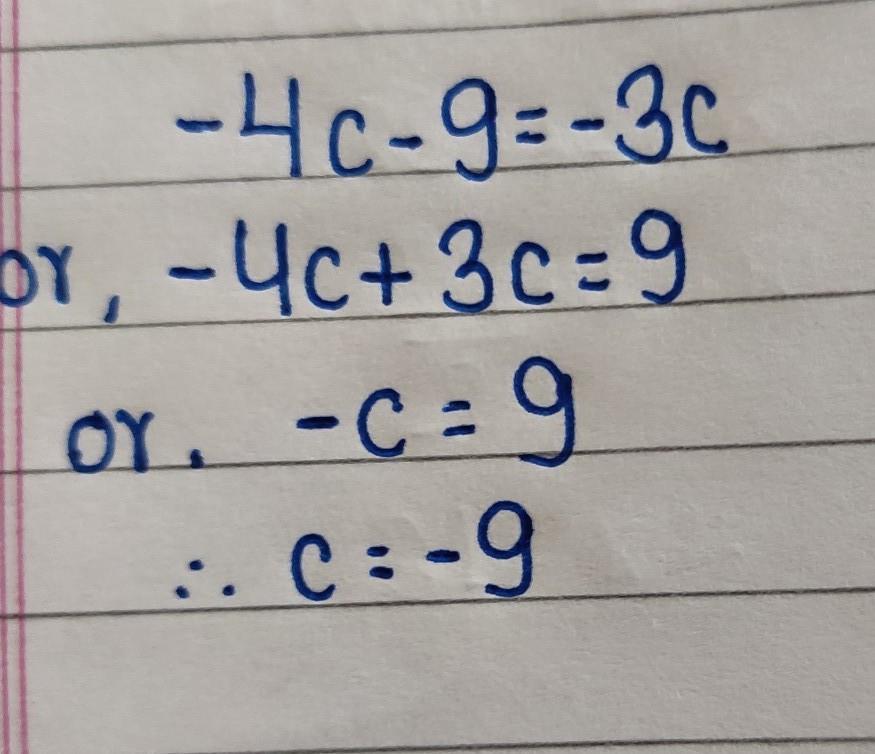 -4c-9=-3c
or, -4c+3c=9
or. -c=9
∴ c=-9